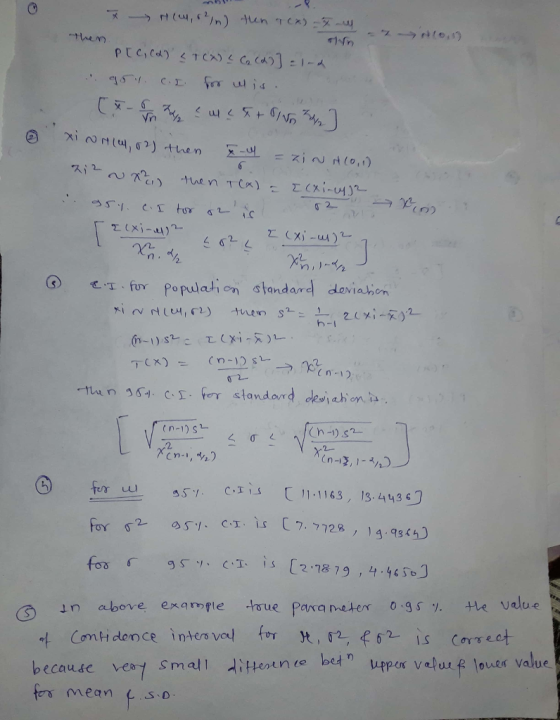 ① x̄ → N(μ, σ²/n) then T(x) = x̄-μ / σ/√n = z → N(0,1)
Then
P[C₁(α) ≤ T(x) ≤ C₂(α)] = 1-α
∴ 95% C.I for μ is.
[x̄ - σ/√n z α/2 ≤ μ ≤ x̄ + σ/√n z α/2]
② xi ~ N(μ, σ²) then x̄-μ / σ = zi ~ N(0,1)
zi² ~ χ²(1) then T(x) = Σ(xi-μ)² / σ² → χ²(n)
∴ 95% C.I for σ² is
[Σ(xi-μ)² / χ²n, α/2 ≤ σ² ≤ Σ(xi-μ)² / χ²n, 1-α/2]
③ C.I. for population standard deviation
xi ~ N(μ, σ²) then s² = 1/n-1 Σ(xi-x̄)²
(n-1)s² = Σ(xi-x̄)².
T(x) = (n-1)s² / σ² → χ²(n-1)
then 95% C.I. for standard deviation is.
[√(n-1)s² / χ²(n-1, α/2) ≤ σ ≤ √(n-1)s² / χ²(n-1, 1-α/2)]
④ for μ 95% C.I is [11.1163, 13.4436]
for σ² 95% C.I. is [7.7728, 19.9364]
for σ 95%. C.I. is [2.7879, 4.4650]
⑤ In above example true parameter 0.95 %. the value
of Confidence interval for μ, σ², & σ² is correct
because very small difference betⁿ upper value & lower value
for mean & S.D.